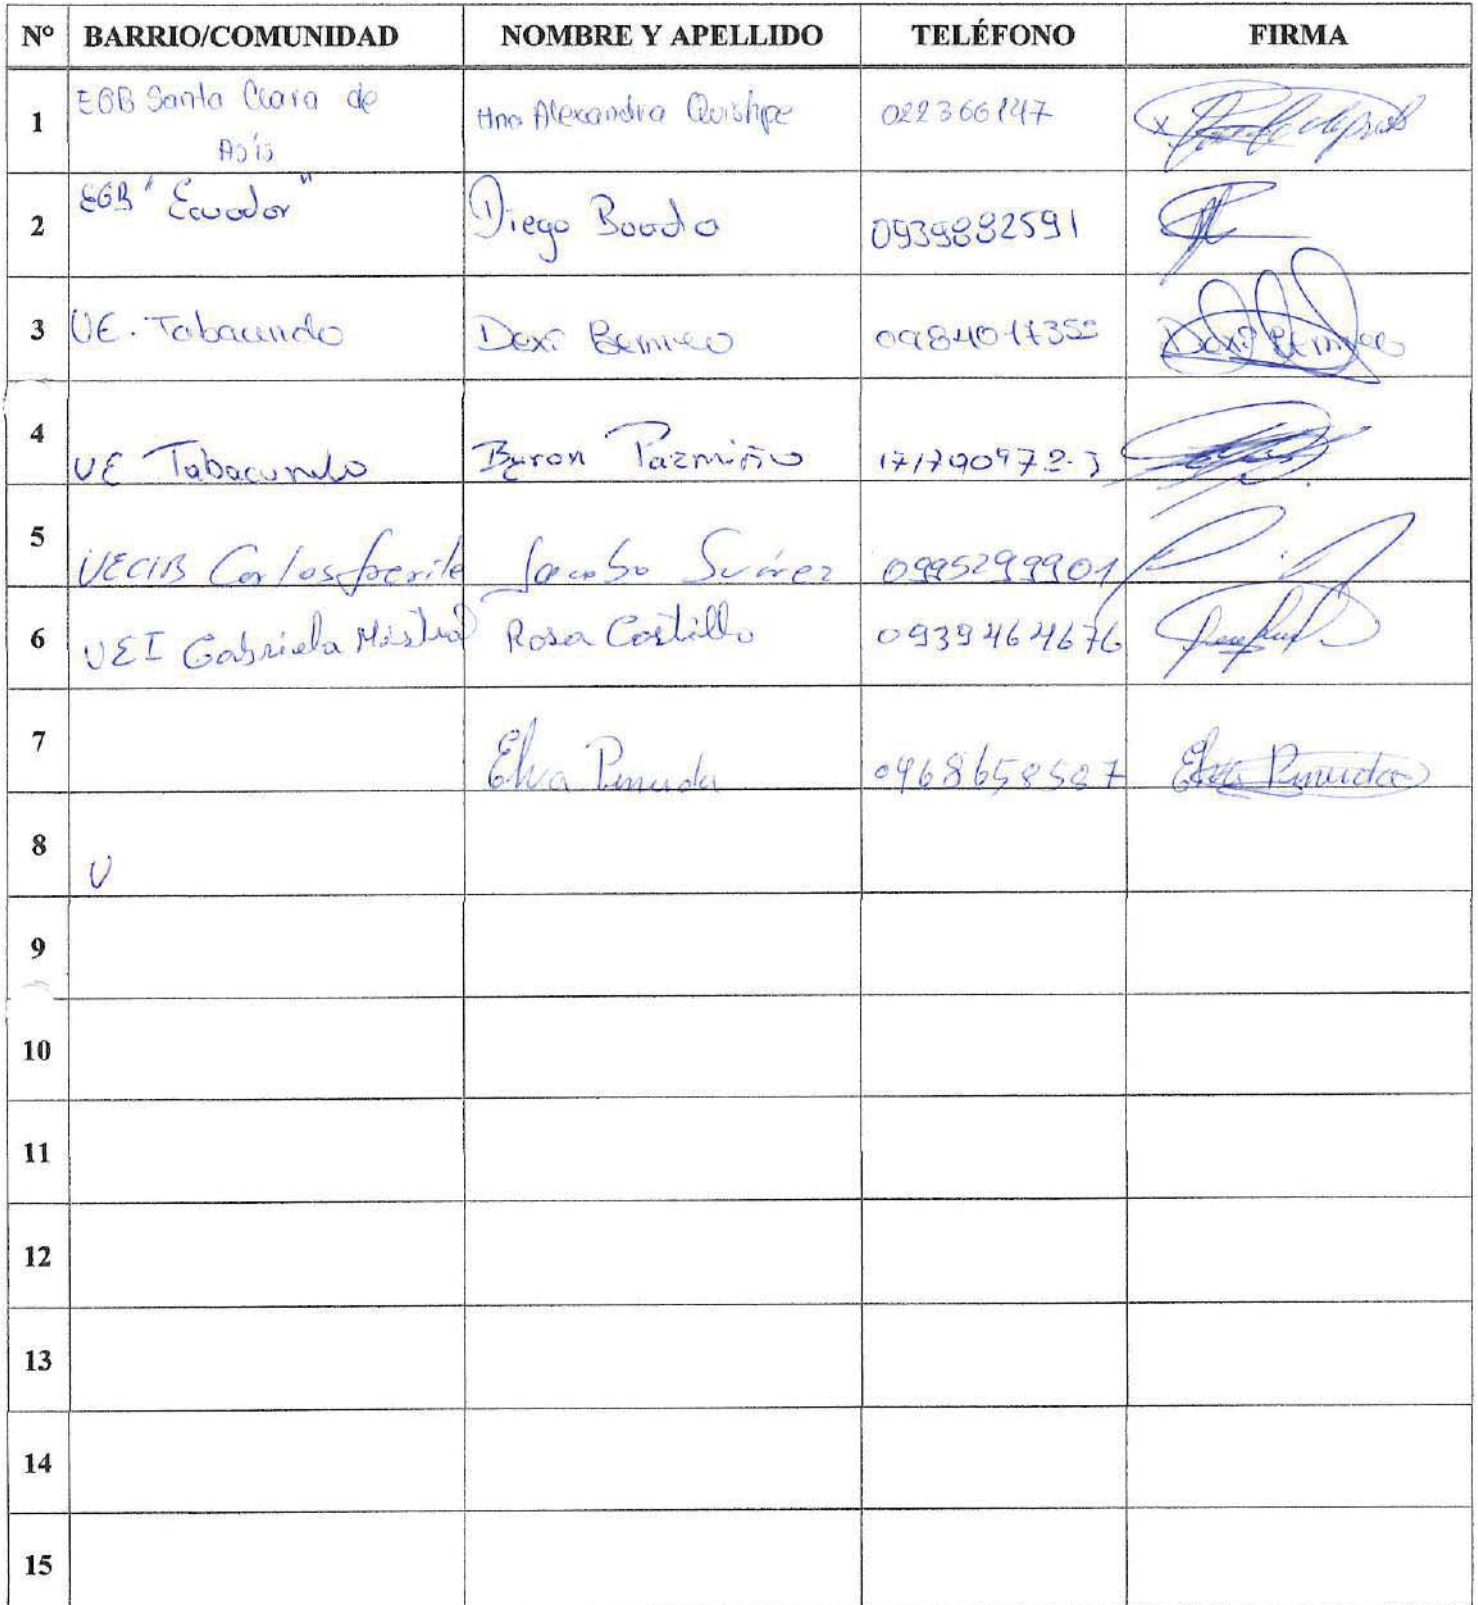 N° BARRIO/COMUNIDAD NOMBRE Y APELLIDO TELÉFONO FIRMA
1 EGB Santa Clara de Asís Hna Alexandra Quishpe 022366147
2 EGB "Ecuador" Diego Boada 0939882591
3 UE. Tabacundo Dexi 
4 UE Tabacundo Byron Pazmiño
5 UECIB Carlos Jacobo Suárez 0995299901
6 UEI Gabriela Mistral Rosa Castillo 0939464676
7 Elva 0968658587 Elva
8 U
9
10
11
12
13
14
15